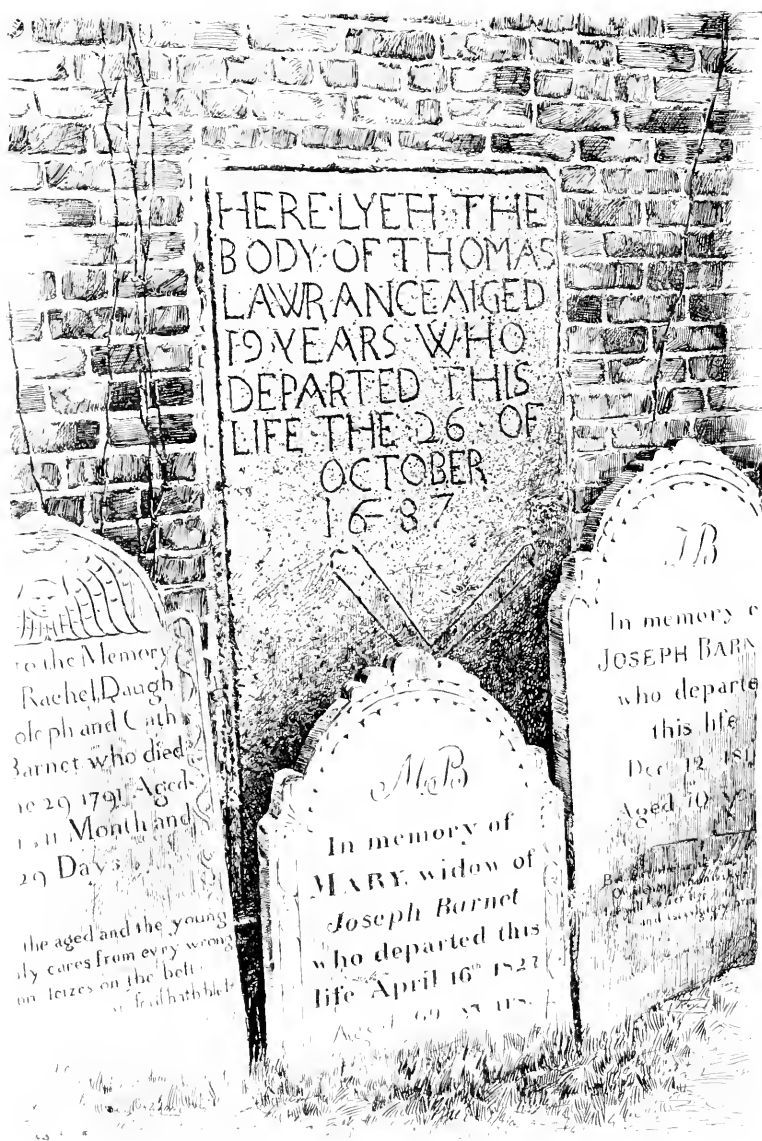 HERE·LYETH·THE
BODY·OF·THOMAS
LAWRANCE AIGED
19·YEARS WHO
DEPARTED THIS
LIFE·THE·26·OF
OCTOBER
1687
to the Memory
Rachel, Daugh
and Cath
Barnet who died
29 1791 Aged
11 Month and
29 Days
the aged and the young
cares from evry wrong
on the
M.B
In memory of
MARY, widow of
Joseph Barnet
who departed this
life April 16th
Aged 69 years.
JB
In memory o
JOSEPH BARN
who departe
this life
Dec 12 181
Aged 70 Ye
and